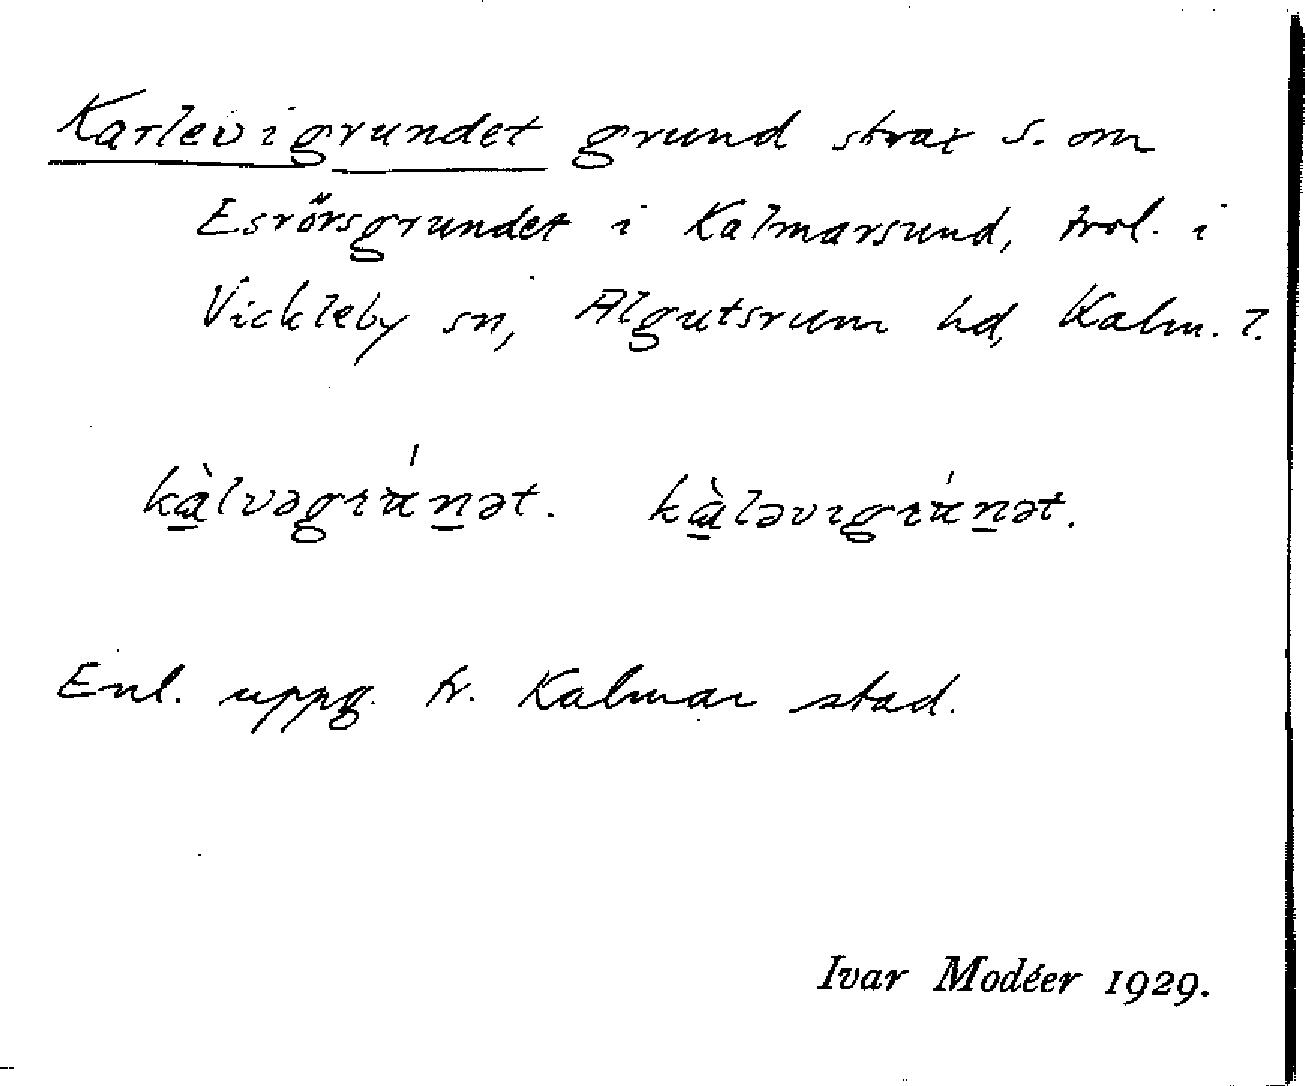 Karlevigrundet grund strax S. om
Esrörsgrundet i Kalmarsund, trol. i
Vickleby sn, Algutsrum hd, Kalm. l.
kàlvəgrúnət. kàləvigrúnət.
Enl. uppg. fr. Kalmar stad.
Ivar Modéer 1929.